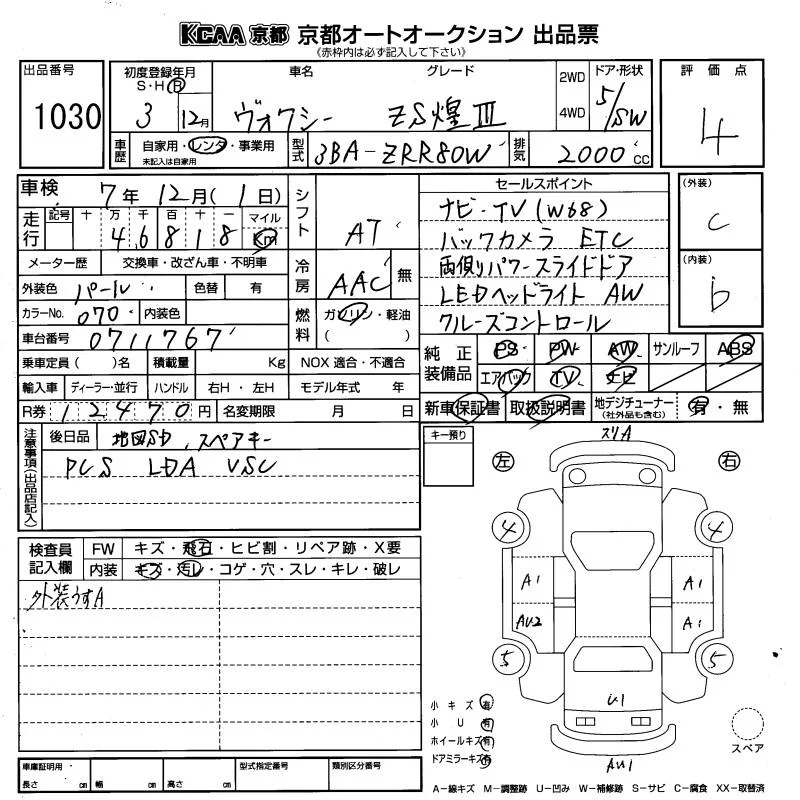 KCAA 京都 京都オートオークション 出品票
(赤枠内は必ず記入して下さい)
出品番号
1030
初度登録年月
S・H・R
3 12月
車名
ヴォクシー
グレード
ZS煌III
2WD
4WD
ドア・形状
5/SW
評価点
4
車歴
自家用・レンタ・事業用
未記入は自家用
型式
3BA-ZRR80W
排気
2000cc
車検
7年 12月(1日)
走行
記号 十 万 千 百 十 一 マイル
4 6 8 1 8 Km
メーター歴 交換車・改ざん車・不明車
外装色 パール 色替 有
カラーNo. 070 内装色
車台番号 0711767
乗車定員( )名 積載量 Kg NOX適合・不適合
輸入車 ディーラー・並行 ハンドル 右H・左H モデル年式 年
R券 12470円 名変期限 月 日
シフト
AT
冷房
AAC 無
燃料
ガソリン・軽油
( )
セールスポイント
ナビ・TV(W68)
バックカメラ ETC
両側パワースライドドア
LEDヘッドライト AW
クルーズコントロール
(外装)
C
(内装)
b
純正装備品
PS PW AW サンルーフ ABS
エアバック TV ナビ
新車保証書 取扱説明書 地デジチューナー(社外品も含む) 有・無
注意事項(出品店記入)
後日品 地図SD、スペアキー
PCS LDA VSC
キー預り
検査員記入欄
FW キズ・飛石・ヒビ割・リペア跡・X要
内装 キズ・汚レ・コゲ・穴・スレ・キレ・破レ
外装うすA
スリA
左 右
4 4
A1 A1
AU2 A1
5 5
U1
AU1
小キズ 有
小U 有
ホイールキズ 有
ドアミラーキズ 有
スペア
車庫証明用
長さ cm 幅 cm 高さ cm
型式指定番号
類別区分番号
A-線キズ M-調整跡 U-凹み W-補修跡 S-サビ C-腐食 XX-取替済